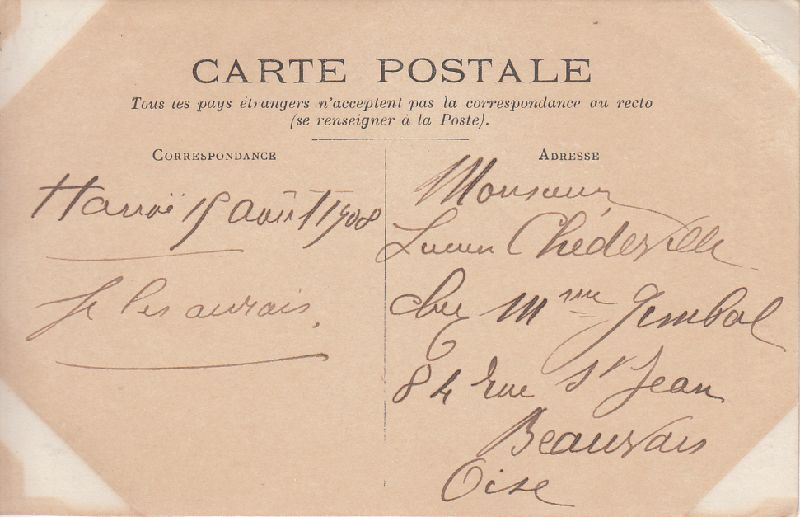 CARTE POSTALE
Tous les pays étrangers n'acceptent pas la correspondance au recto
(se renseigner à la Poste).
CORRESPONDANCE
Hanoï 15 août 1908
Je les aurais.
ADRESSE
Monsieur
Lucien Chédeville
chez Mme Gimbal
84 rue St Jean
Beauvais
Oise